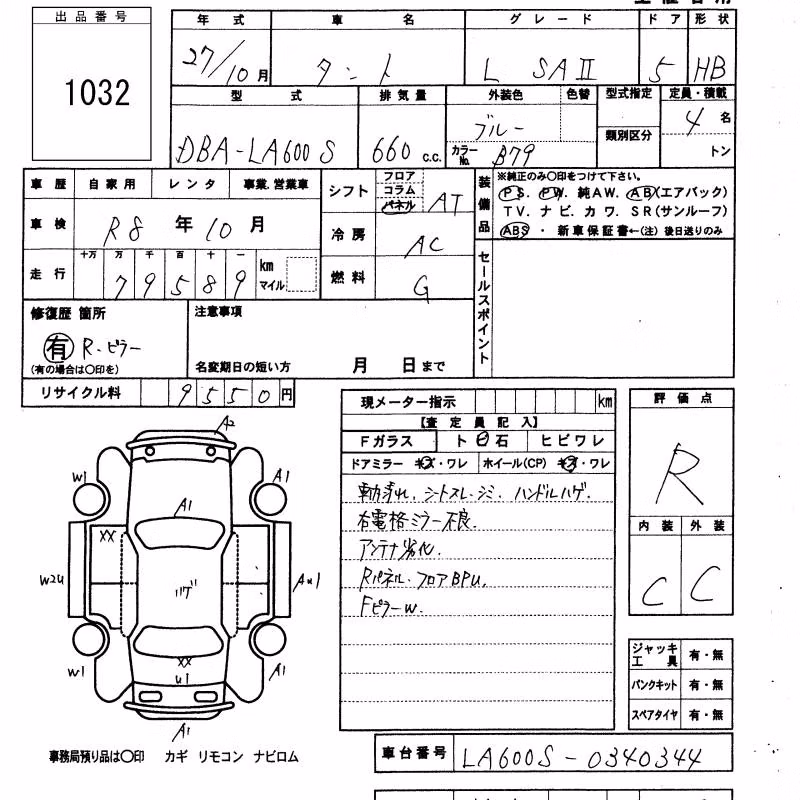 出品番号
1032
年式 車名 グレード ドア 形状
27/10月 タント L SAⅡ 5 HB
型式 排気量 外装色 色替 型式指定 定員・積載
DBA-LA600S 660 c.c. ブルー 類別区分 4名
カラーNo. B79 トン
車歴 自家用 レンタ 事業.営業車
シフト フロア コラム パネル AT
装備品 ※純正のみ○印をつけて下さい。
PS. PW. 純AW. AB(エアバック)
TV. ナビ. カワ. SR(サンルーフ)
ABS ・ 新車保証書←(注) 後日送りのみ
車検 R8年10月
冷房 AC
走行 十万 万 千 百 十 一 km マイル
79589
燃料 G
セールスポイント
修復歴 箇所
有 R.ピラー
(有の場合は○印を)
注意事項
名変期日の短い方 月 日まで
リサイクル料 9550円
現メーター指示 km
【査定員記入】
Fガラス ト 石 ヒビワレ
ドアミラー キズ・ワレ ホイール(CP) キズ・ワレ
シートスレ.シミ. ハンドルハゲ.
右電格ミラー不良.
アンテナ劣化.
Rパネル.フロアBPU.
FピラーW.
評価点
R
内装 外装
C C
ジャッキ工具 有・無
パンクキット 有・無
スペアタイヤ 有・無
A2
W1 A1
A1
XX
W2U ハゲ A*1
XX
U1
W1 A1
A1
事務局預り品は○印 カギ リモコン ナビロム
車台番号 LA600S-0340344